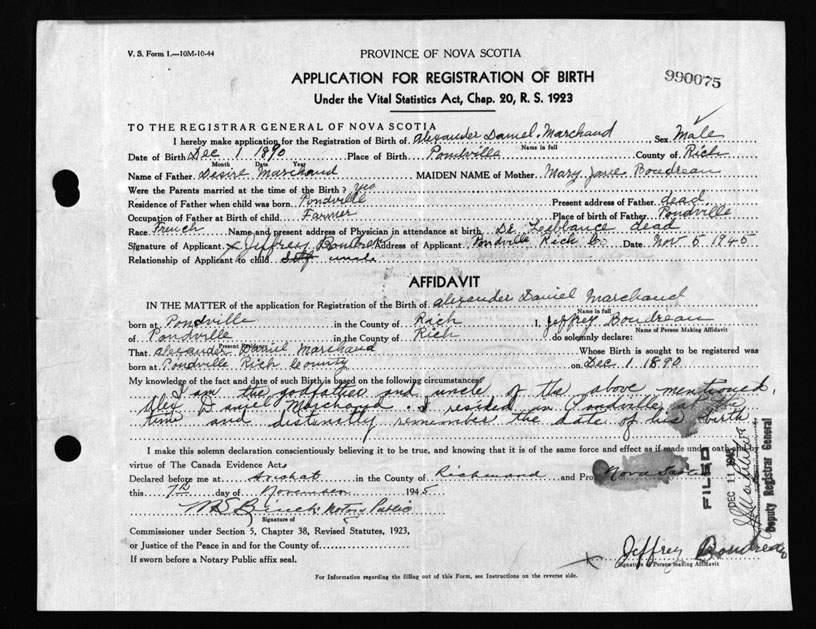 V. S. Form 1.—10M-10-44
PROVINCE OF NOVA SCOTIA
APPLICATION FOR REGISTRATION OF BIRTH
990075
Under the Vital Statistics Act, Chap. 20, R. S. 1923
TO THE REGISTRAR GENERAL OF NOVA SCOTIA
I hereby make application for the Registration of Birth of Alexander Daniel Marchand Sex Male
Name in full
Date of Birth Dec 1 1890 Place of Birth Pondville County of Rich
Month Date Year
Name of Father Desire Marchand MAIDEN NAME of Mother Mary Jane Boudreau
Were the Parents married at the time of the Birth? yes
Residence of Father when child was born Pondville Present address of Father dead
Occupation of Father at Birth of child Farmer Place of birth of Father Pondville
Race French Name and present address of Physician in attendance at birth Dr dead
Signature of Applicant x Jeffrey Address of Applicant Pondville Rich Co. Date Nov 5 1945
Relationship of Applicant to child uncle
AFFIDAVIT
IN THE MATTER of the application for Registration of the Birth of Alexander Daniel Marchand
Name in full
born at Pondville in the County of Rich I, Jeffrey Boudreau
Name of Person Making Affidavit
of Pondville in the County of Rich do solemnly declare:
Present Residence
That Alexander Daniel Marchand Whose Birth is sought to be registered was
born at Pondville Rich County on Dec 1 1890
My knowledge of the fact and date of such Birth is based on the following circumstances
I am the godfather and uncle of the above mentioned,
Alex Daniel Marchand. I resided in Pondville at the
time and distinctly remember the date of his birth
I make this solemn declaration conscientiously believing it to be true, and knowing that it is of the same force and effect as if made under oath and by
virtue of The Canada Evidence Act.
Declared before me at Arichat in the County of Richmond and Pro Nova Scotia
this 7th day of November 1945
Notary Public
Signature of
Commissioner under Section 5, Chapter 38, Revised Statutes, 1923,
or Justice of the Peace in and for the County of
If sworn before a Notary Public affix seal.
x Jeffrey Boudreau
Signature of Person making Affidavit
For Information regarding the filling out of this Form, see Instructions on the reverse side.
FILED
DEC 11 1945
Deputy Registrar General